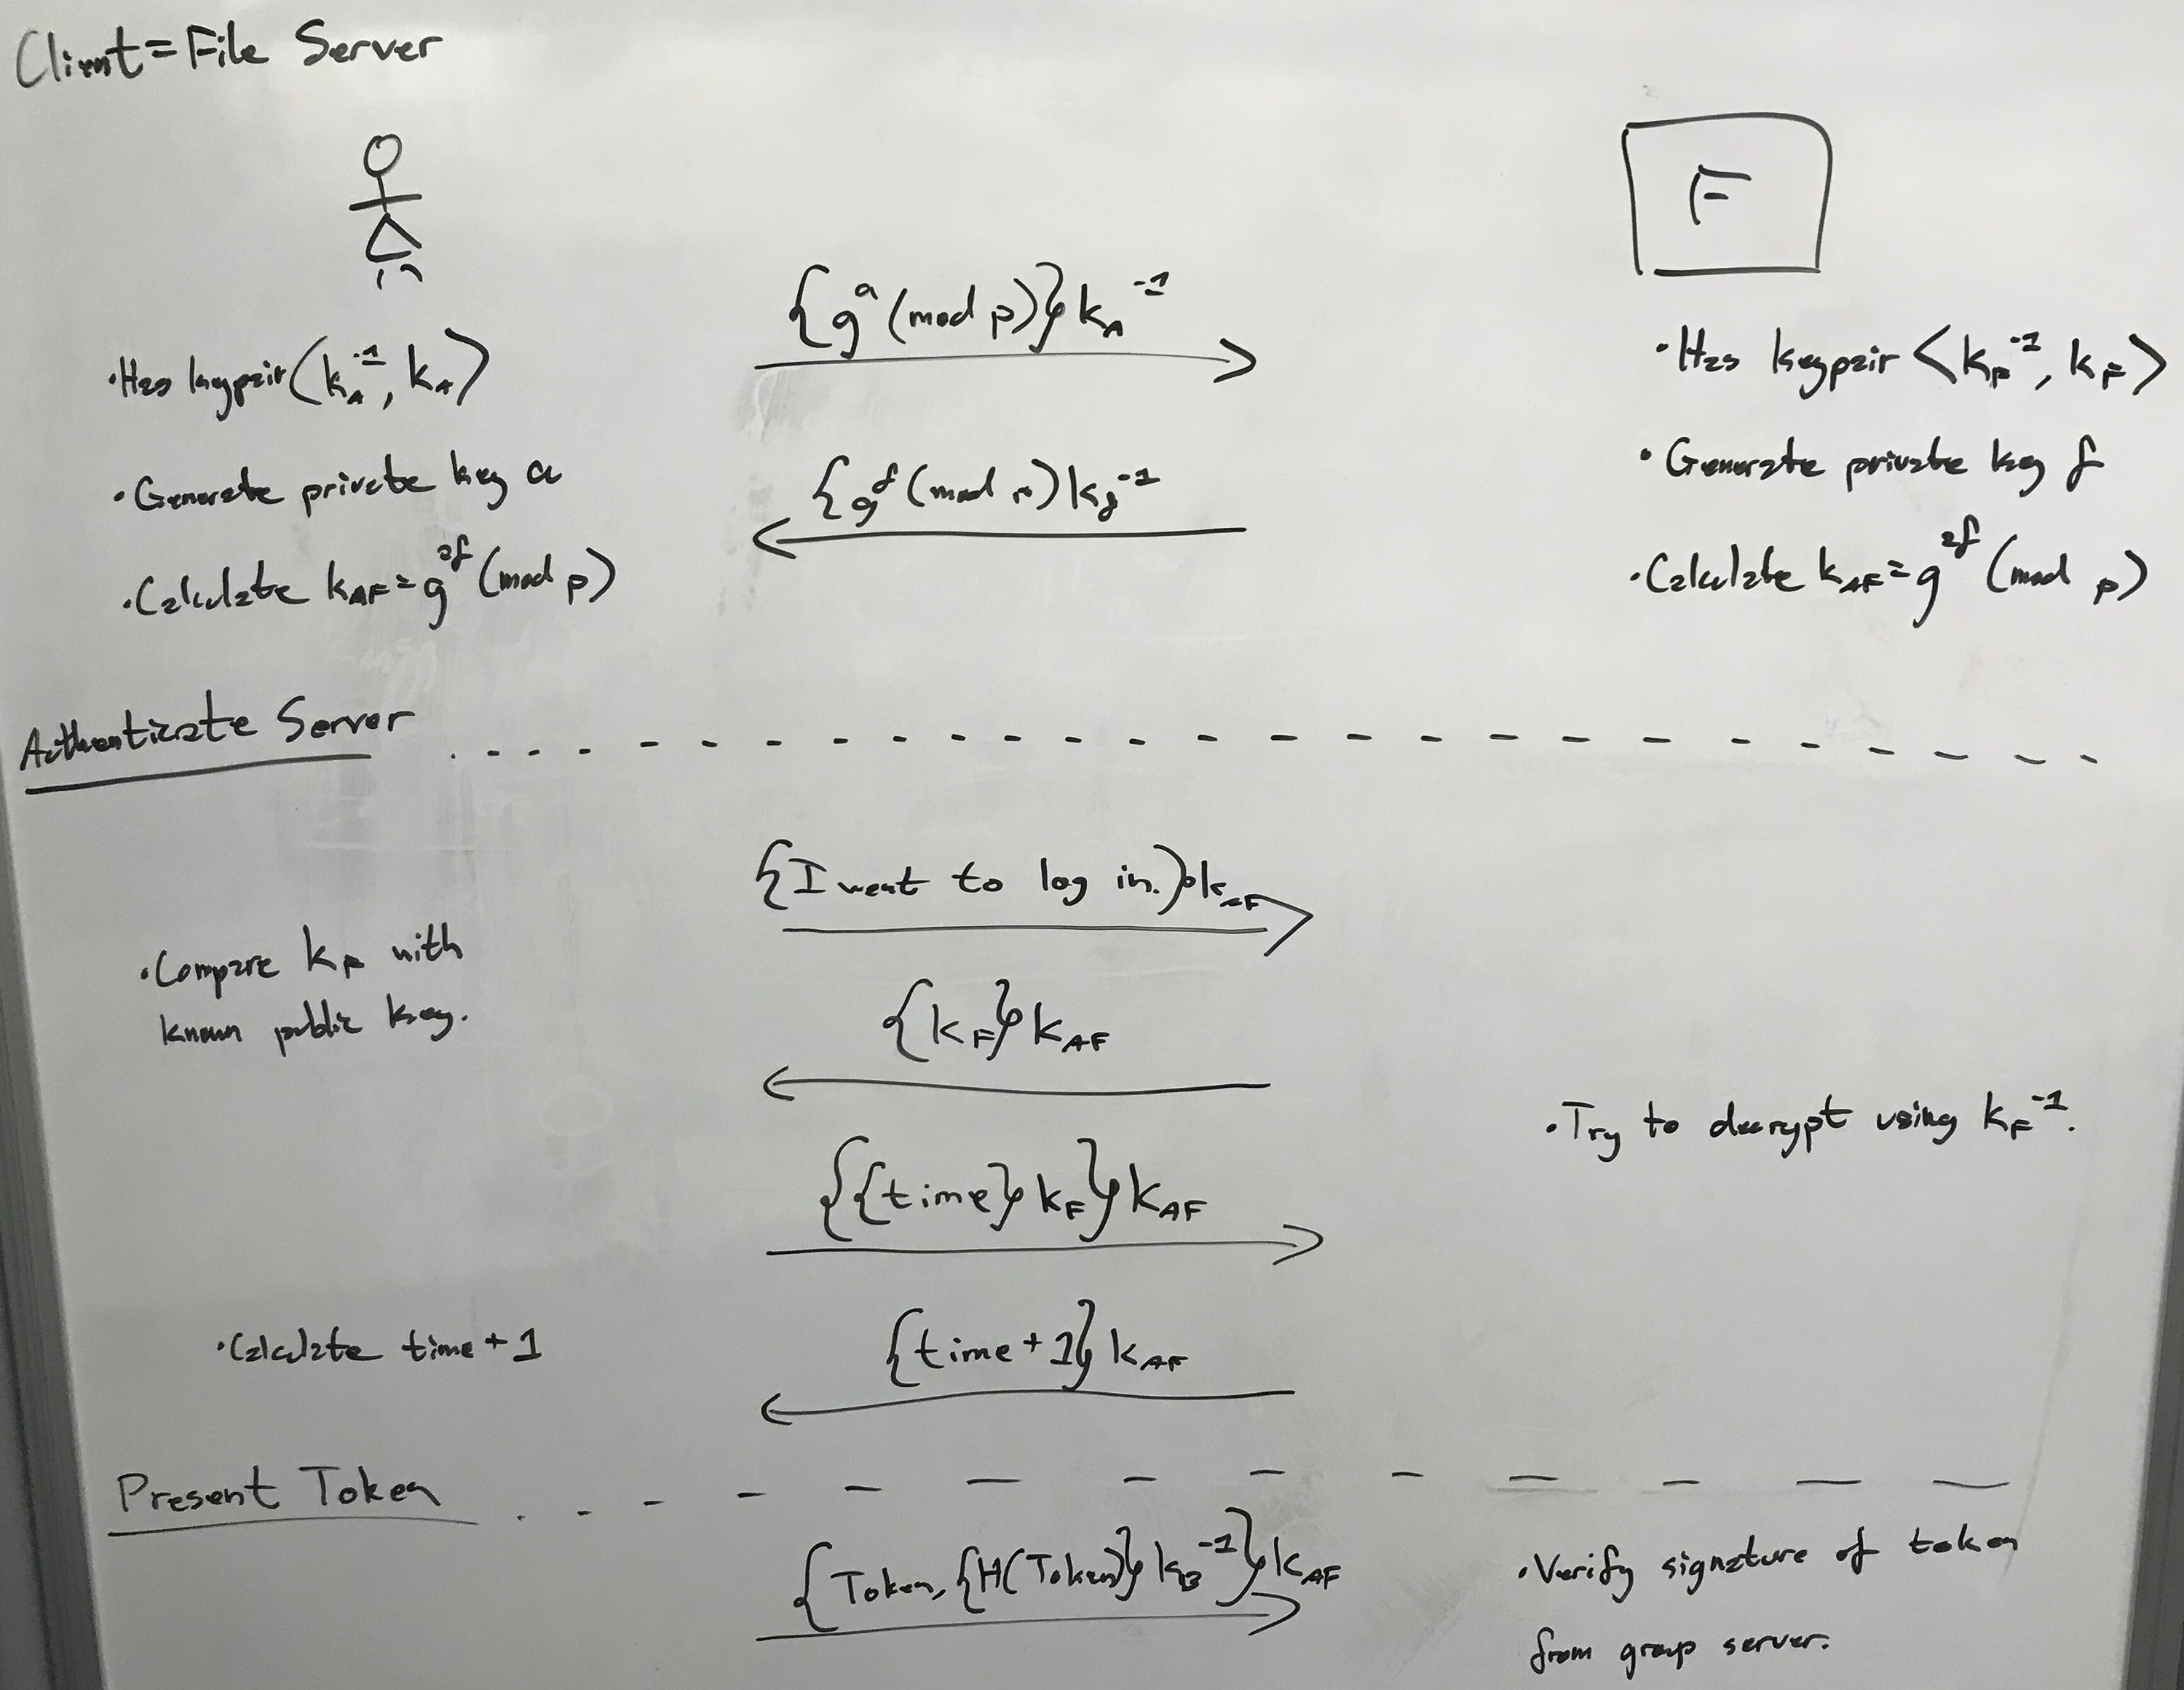 Client = File Server
F
{gᵃ (mod p)} k_A⁻¹
• Has keypair (k_A⁻¹, k_A)
• Has keypair <k_F⁻¹, k_F>
• Generate private key a
{gᶠ (mod p) k_f⁻¹
• Generate private key f
• Calculate k_AF = gᵃᶠ (mod p)
• Calculate k_AF = gᵃᶠ (mod p)
Authenticate Server
{I want to log in.} k_AF
• Compare k_F with
known public key.
{k_F} k_AF
• Try to decrypt using k_F⁻¹.
{{time} k_F} k_AF
• Calculate time + 1
{time + 1} k_AF
Present Token
{Token, {H(Token)} k_B⁻¹} k_AF
• Verify signature of token
from group server.